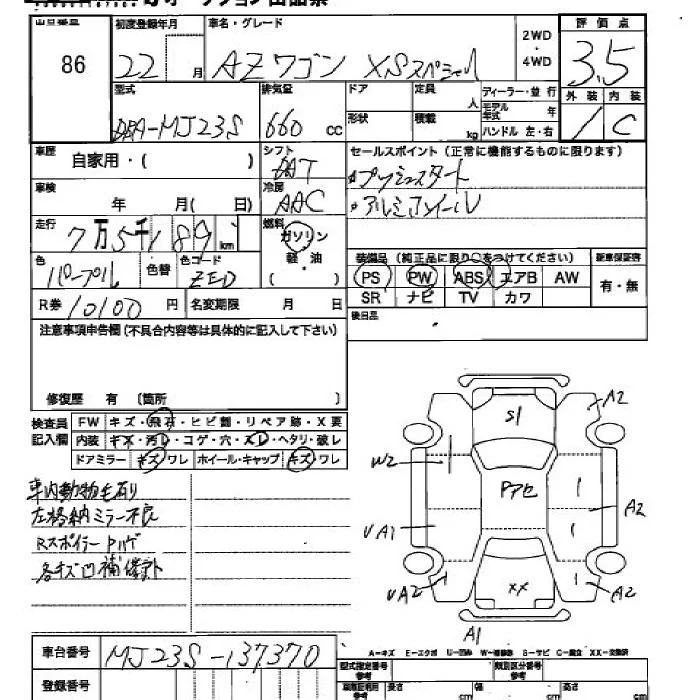 オークション出品票
出品番号 初度登録年月 車名・グレード 2WD・4WD 評価点
86 22 月 AZワゴン XSスペシャル 3.5
外装 内装
1 C
型式 排気量 ドア 定員 人 ディーラー・並行
DBA-MJ23S 660 cc 形状 積載 kg モデル年式 年
ハンドル 左・右
車歴 自家用・( ) シフト セールスポイント (正常に機能するものに限ります)
プッシュスタート
車検 年 月( 日) 冷房 AAC アルミホイール
走行 7万5千189km 燃料 ガソリン
軽・油
( )
色 パープル 色替 色コード ZED
装備品 (純正品に限り○をつけてください) 新車保証書
PS PW ABS エアB AW 有・無
SR ナビ TV カワ
R券 10100 円 名変期限 月 日 後日品
注意事項申告欄(不具合内容等は具体的に記入して下さい)
修復歴 有 〔箇所 〕
検査員記入欄 FW キズ・飛石・ヒビ割・リペア跡・X要
内装 キズ・汚レ・コゲ・穴・スレ・ヘタリ・破レ
ドアミラー キズ・ワレ ホイール・キャップ キズ・ワレ
車内動物毛有り
左格納ミラー不良
Rスポイラー Pハゲ
各キズ凹補修跡
A2
S1
W2
Pアセ
A2
UA1
UA2
XX
A2
A1
A-キズ E-エクボ U-凹み W-補修跡 S-サビ C-腐食 XX-交換済
車台番号 MJ23S-137370
登録番号
型式指定番号 参考 類別区分番号 参考
長さ cm 幅 cm 高さ cm